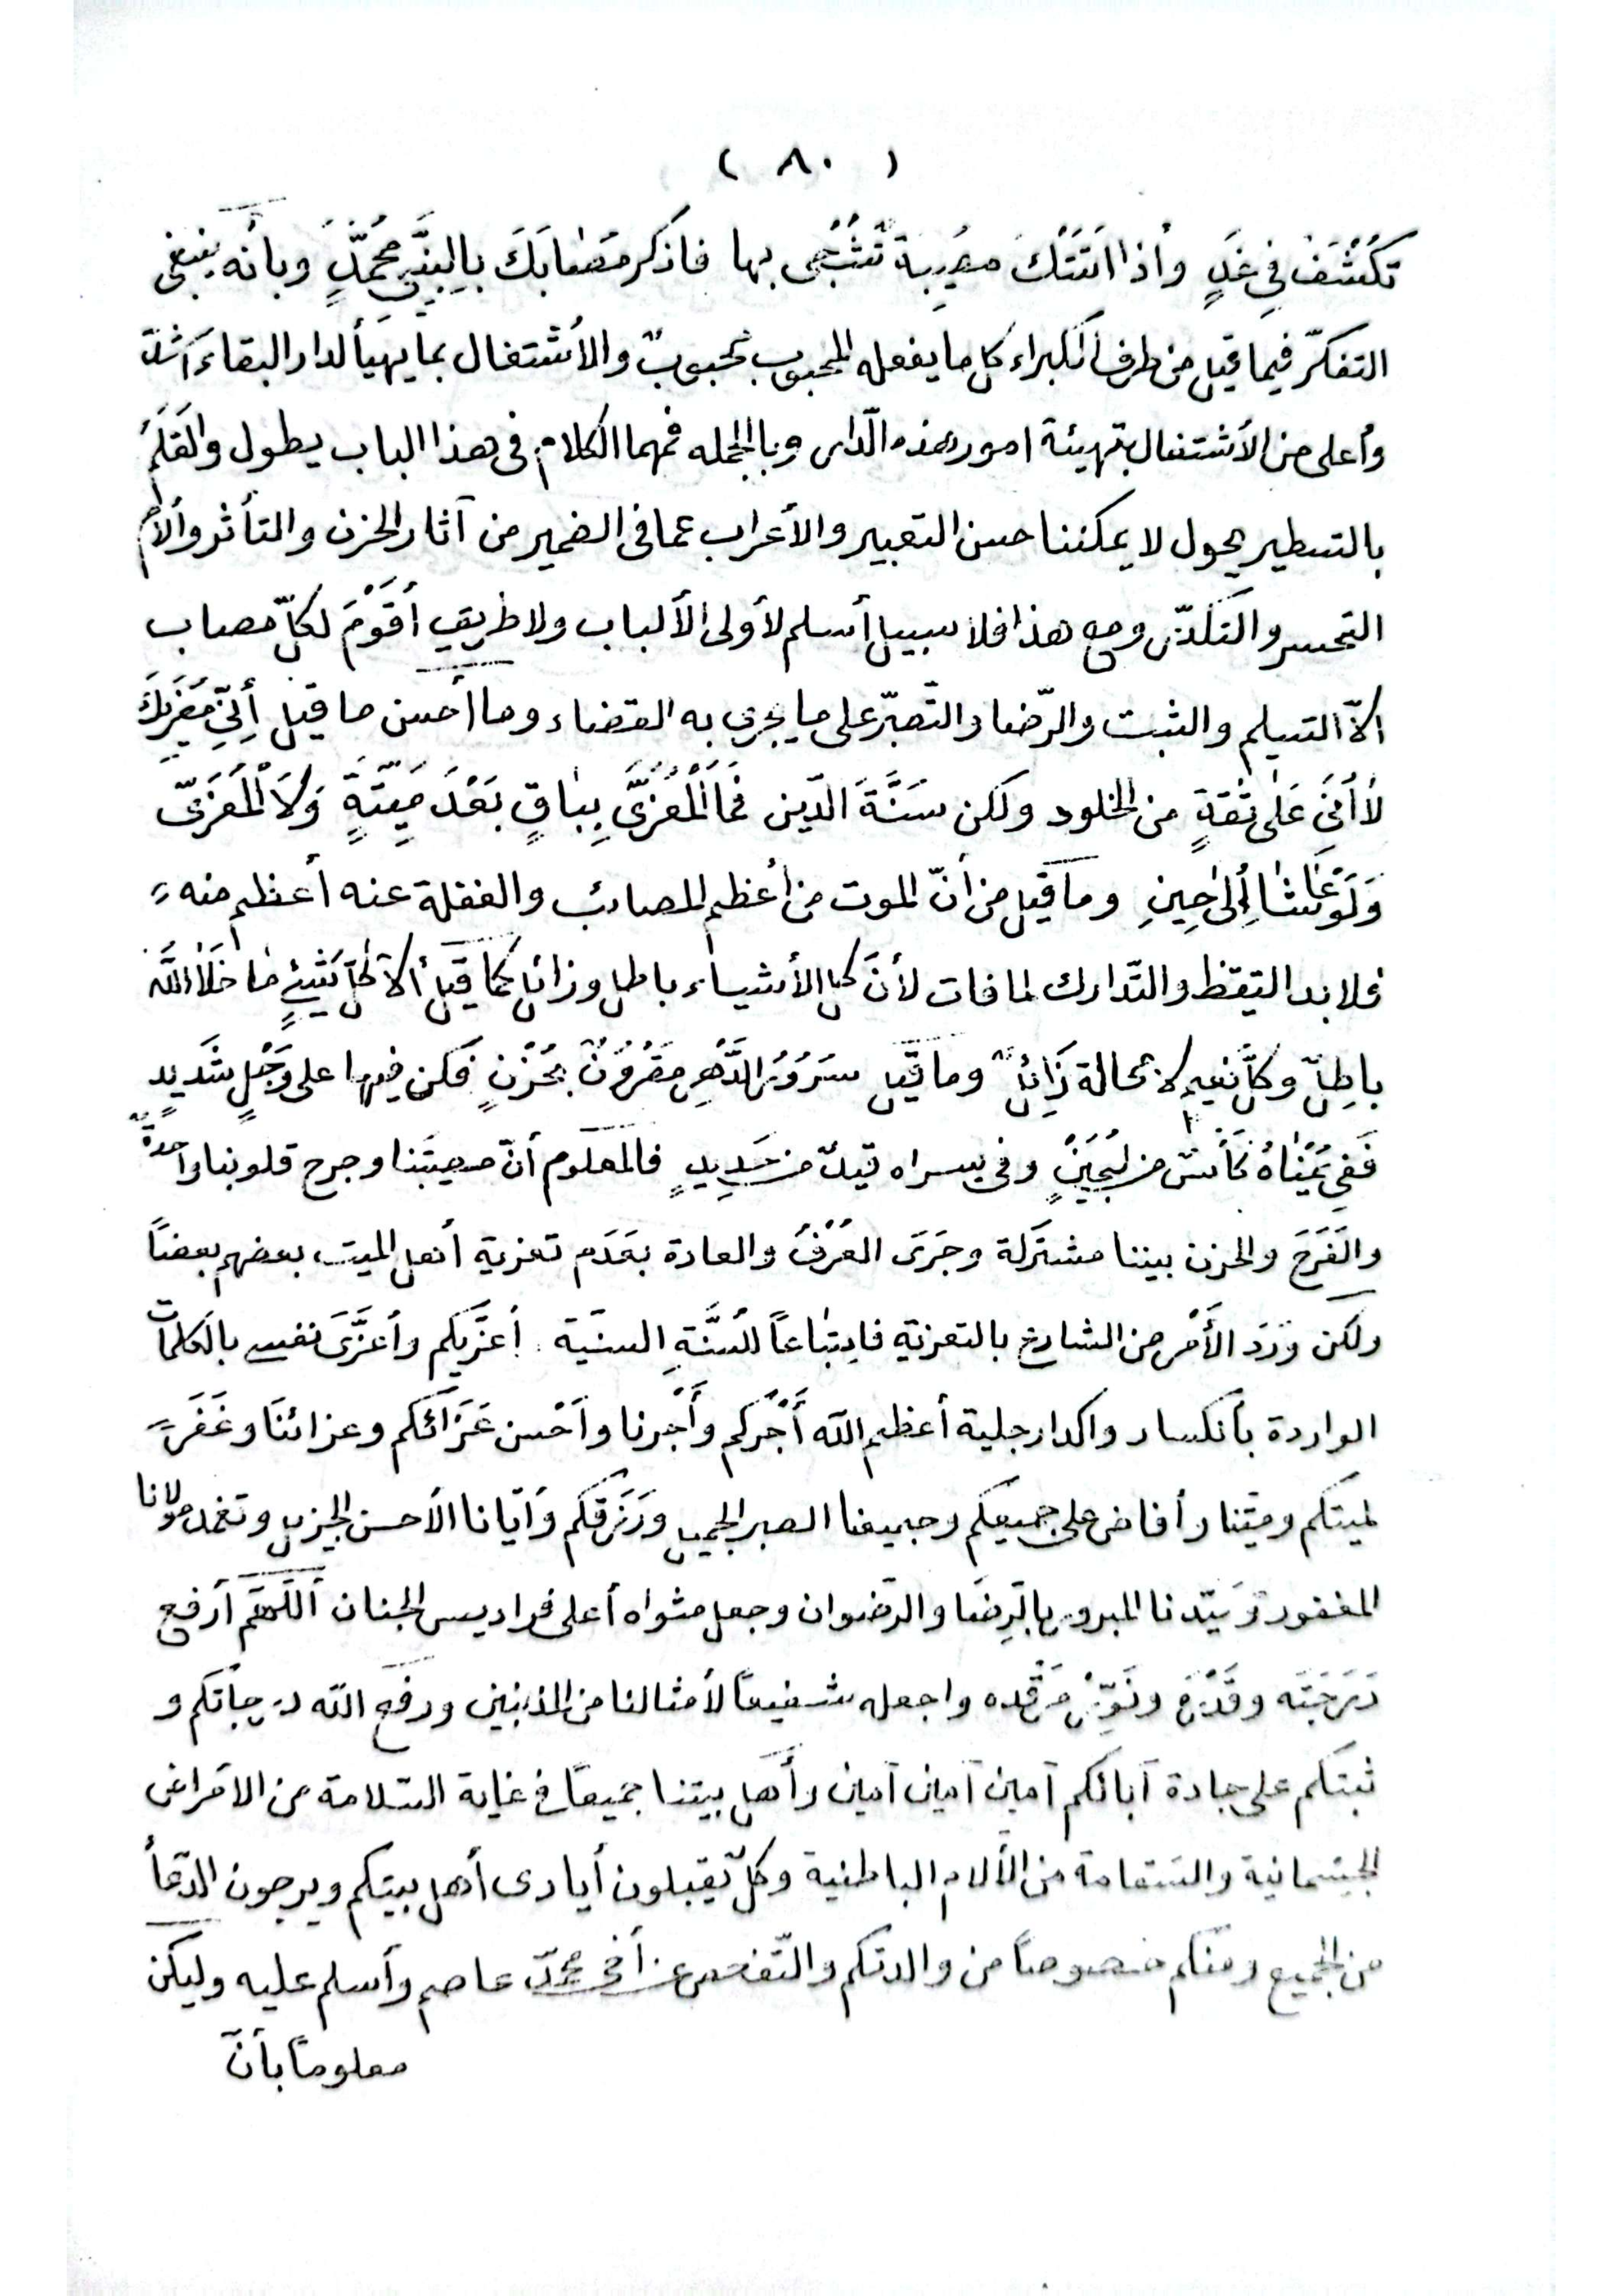 ( ٨٠ )
تكشف في غد وأذا أتتك مصيبة تشجى بها فاذكر مصابك بالنبي محمد وبأنه ينبغي
التفكر فيما قيل من طرف الكبراء كل ما يفعله المحبوب محبوب والأشتغال بما يهيأ لدار البقاء أشد
وأعلى من الأشتغال بتهيئة امور هذه الدار وبالجمله فمهما الكلام فى هذا الباب يطول والقلم
بالتسطير يحول لا يمكننا حسن التعبير والأعراب عما فى الضمير من آثار الحزن والتأثر وألام
التحسر والتكدر ومع هذا فلا سبيل أسلم لأولى الألباب ولا طريق أقوم لكل مصاب
الا التسليم والثبت والرضا والتصبر على ما يجرى به القضاء وما أحسن ما قيل أني معزيك
لا أني على ثقة من الخلود ولكن سنة الدين فما المعزى بباق بعد ميته ولا المعزى
ولو عاشا ألى حين وما قيل من أن الموت من أعظم المصائب والغفلة عنه أعظم منه
فلا بد التيقظ والتدارك لما فات لأن كل الأشياء باطل وزائل كما قيل ألا كل شئ ما خلا الله
باطل وكل نعيم لا محالة زائل وما قيل سرور الدهر مقرون بحزن فكن فيها على وجل شديد
ففي يمناه كأس من لجين وفى يسراه قيد من حديد فالمعلوم أن مصيبتنا وجرح قلوبنا واحدة
والفرح والحزن بيننا مشتركة وجرى العرف والعادة بعدم تعزية أهل الميت بعضهم بعضاً
ولكن ورد الأمر من الشارع بالتعزية فاتباعاً للسنة السنية أعزيكم وأعزى نفسى بالكلمات
الواردة بأنكسار واكدار جلية أعظم الله أجركم وأجرنا وأحسن عزائكم وعزائنا وغفر
لميتكم وميتنا وأفاض على جميعكم وجميعنا الصبر الجميل ورزقكم وأيانا الأحسن الجزيل وتغمد مولانا
المغفور وسيدنا المبرور بالرضا والرضوان وجعل مثواه أعلى فراديس الجنان أللهم أرفع
درجته وقدره ونور مرقده واجعله شفيعاً لأمثالنا من المذنبين ورفع الله درجاتكم و
ثبتكم على جادة آبائكم آمين آمين آمين وأهل بيتنا جميعاً فى غاية السلامة من الامراض
الجسمانية والسقامة من الألام الباطنية وكل يقبلون أيادى أهل بيتكم ويرجون الدعأ
من الجميع ومنكم خصوصاً من والدتكم والتفحص عن أخى محمد عاصم وأسلم عليه وليكن
معلوماً بأن